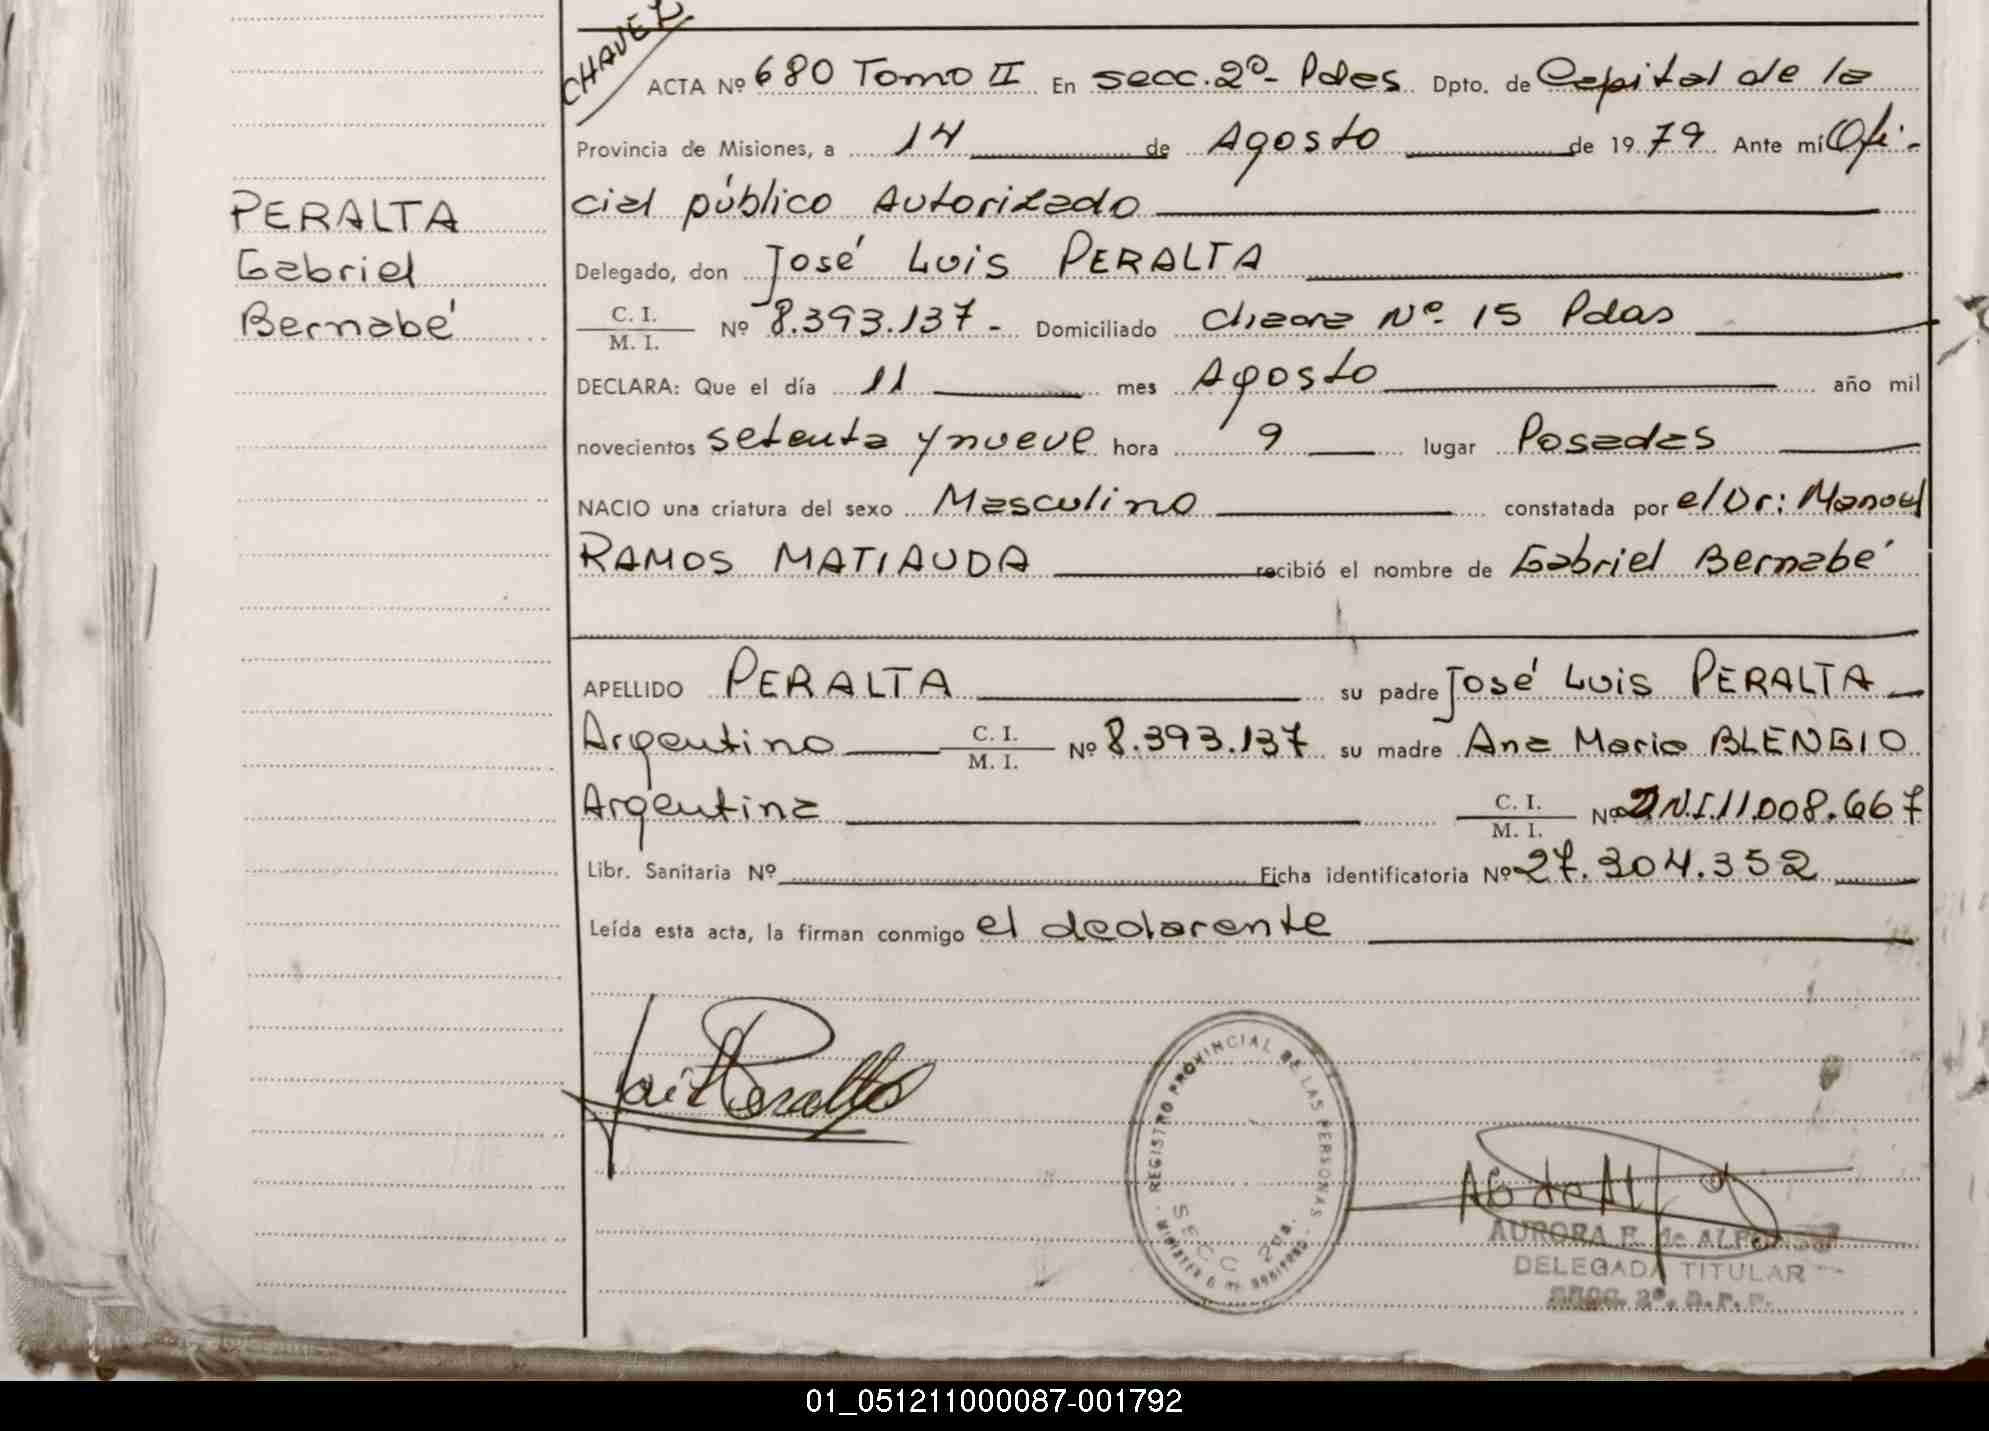 CHAVEZ
ACTA Nº 680 Tomo II En secc. 2º- Pdas Dpto. de Capital de la
Provincia de Misiones, a 14 de Agosto de 1979 Ante mí Ofi-
cial público Autorizado
PERALTA
Gabriel
Bernabé
Delegado, don José Luis PERALTA
C. I.
M. I. Nº 8.393.137- Domiciliado Chacra Nº 15 Pdas
DECLARA: Que el día 11 mes Agosto año mil
novecientos setenta y nueve hora 9 lugar Posadas
NACIO una criatura del sexo Masculino constatada por el Dr: Manuel
RAMOS MATIAUDA recibió el nombre de Gabriel Bernabé
APELLIDO PERALTA su padre José Luis PERALTA
Argentino C. I. M. I. Nº 8.393.137 su madre Ana Maria BLENGIO
Argentina C. I. M. I. Nº D.N.I. 11.008.667
Libr. Sanitaria Nº Ficha identificatoria Nº 27.304.352
Leída esta acta, la firman conmigo el declarante
REGISTRO PROVINCIAL DE LAS PERSONAS
SECC 2da.
AURORA E. de ALFONSO
DELEGADA TITULAR
SECC. 2º.
01_051211000087-001792